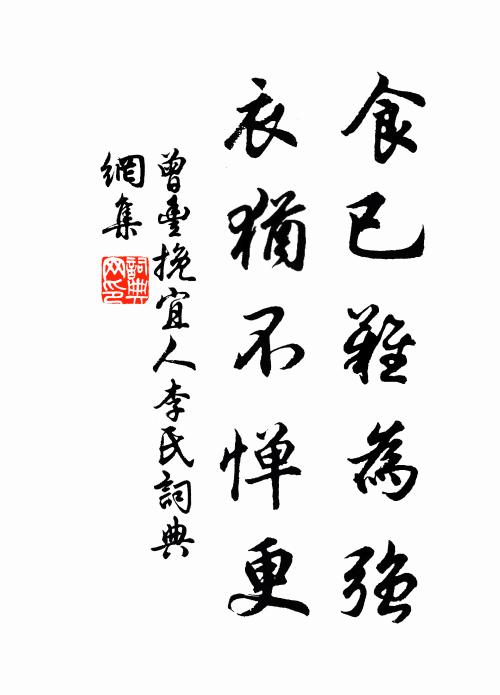 食已難為強
衣猶不憚更
曾豐挽宜人李氏詞典
網集
詞典
网印